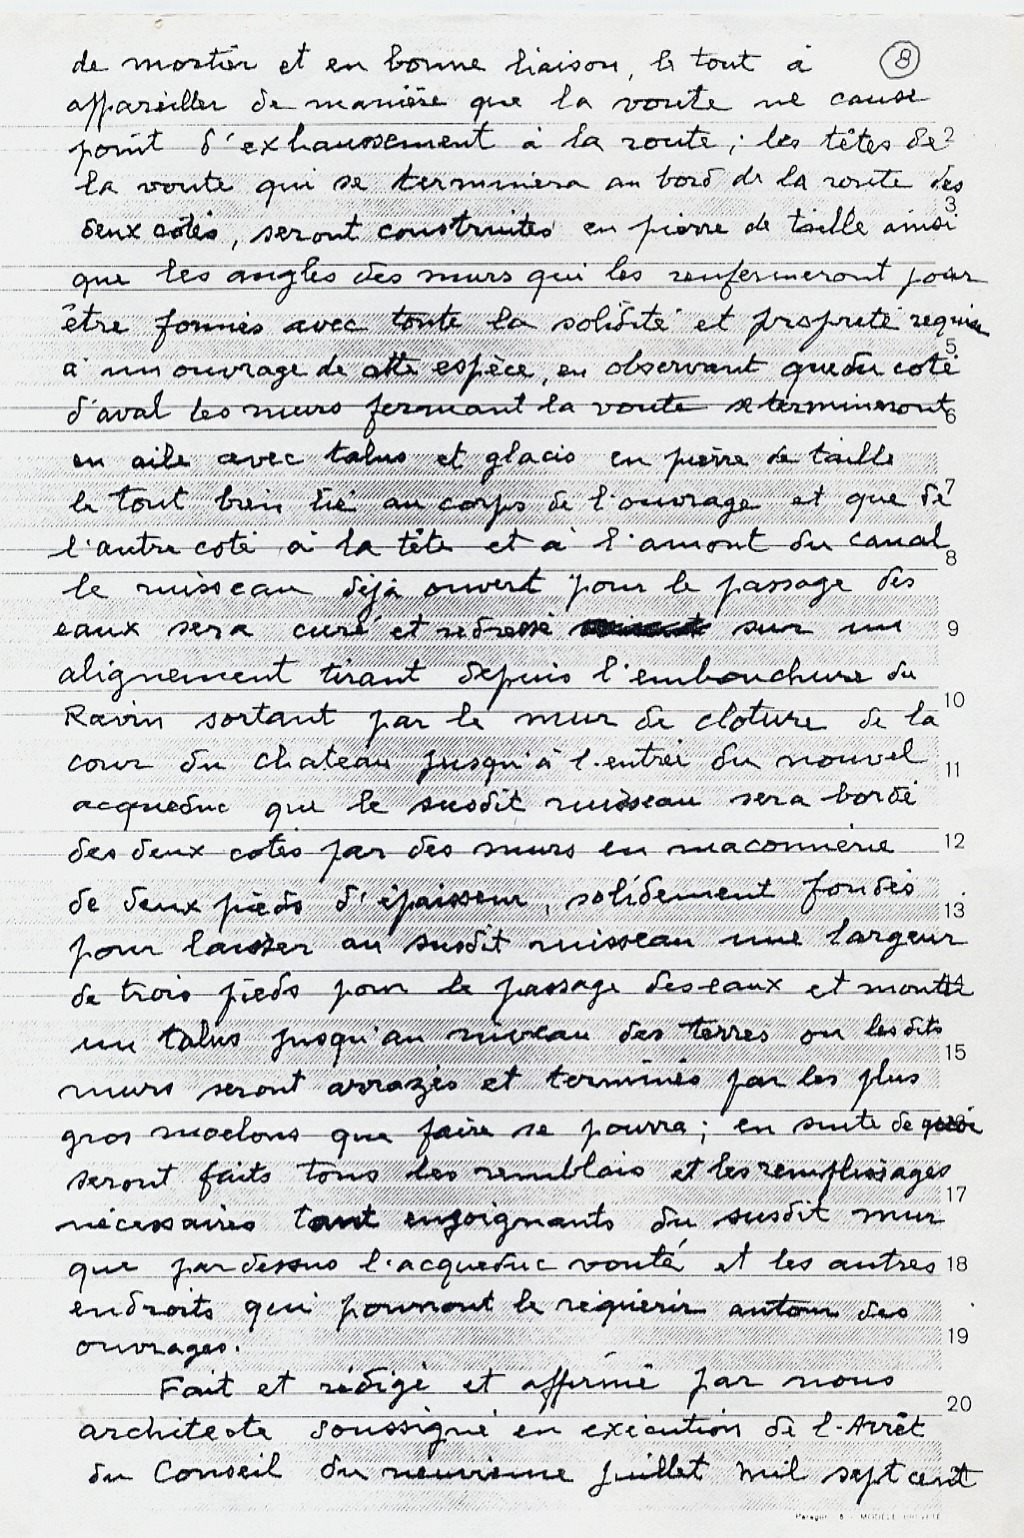 de mortier et en bonne liaison, le tout à 8
appareiller de manière que la voute ne cause
point d'exhaussement à la route ; les têtes de 2
la voute qui se terminera au bord de la route des
3
deux cotés, seront construites en pierre de taille ainsi
que les angles des murs qui les renfermeront pour
être formés avec toute la solidité et propreté requise
5
à un ouvrage de cette espèce, en observant que du coté
d'aval les murs fermant la voute se termineront 6
en aile avec talus et glacis en pierre de taille
le tout bien lié au corps de l'ouvrage et que de 7
l'autre coté à la tête et à l'amont du canal 8
le ruisseau déjà ouvert pour le passage des
eaux sera curé et redressé sur un 9
alignement tirant depuis l'embouchure du
Ravin sortant par le mur de cloture de la 10
cour du chateau jusqu'à l'entrée du nouvel 11
acqueduc que le susdit ruisseau sera bordé
des deux cotés par des murs en maconnerie 12
de deux pieds d'épaisseur, solidement fondés 13
pour laisser au susdit ruisseau une largeur
de trois pieds pour le passage des eaux et
un talus jusqu'au niveau des terres ou les dits 15
murs seront arrazés et terminés par les plus
gros moelons que faire se pourra ; en suite de quoi
seront faits tous les remblais et les remplissages 17
nécessaires tant enjoignants du susdit mur
que par dessus l'acqueduc vouté et les autres 18
endroits qui pourront le réquérir autour des
ouvrages. 19
Fait et rédigé et affirmé par nous
20
architecte soussigné en exécution de l'Arrêt
du Conseil du neuvième juillet mil sept cent